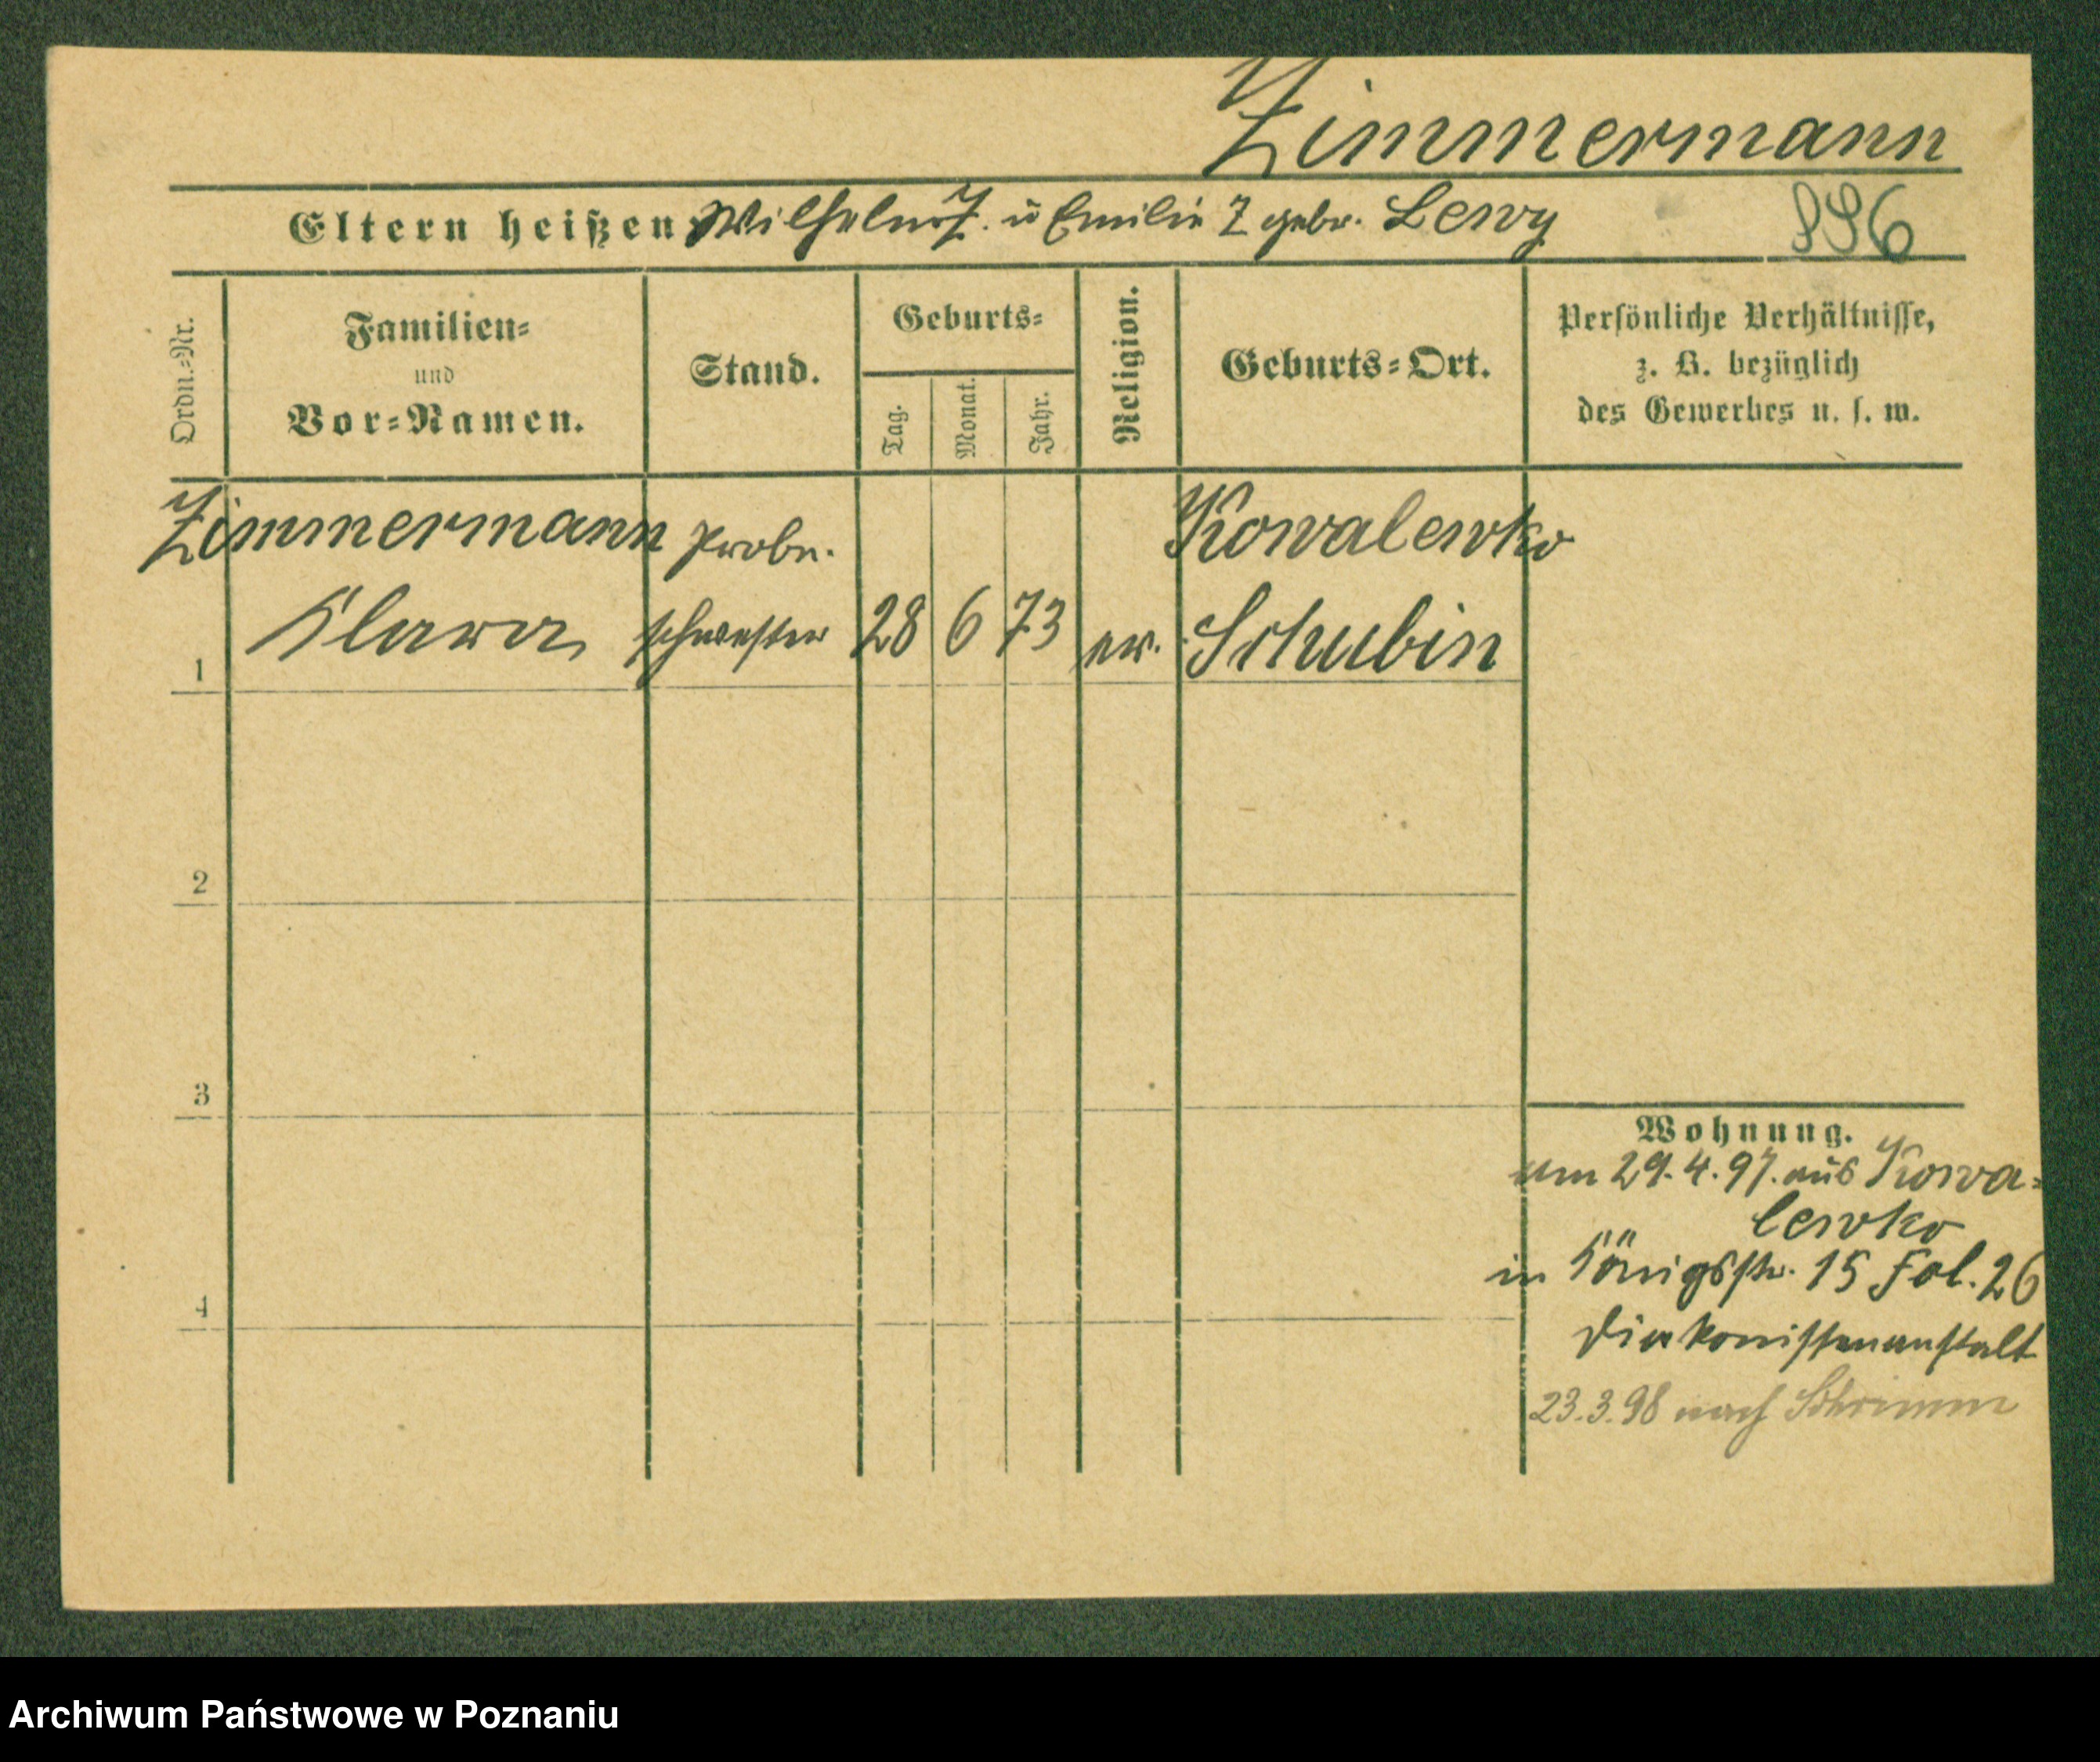 Zimmermann
Eltern heißen Wilhelm Z. u Emilie Z gebr. Lewy
996
Ordn.-Nr.
Familien-
und
Vor-Namen.
Stand.
Geburts-
Tag.
Monat.
Jahr.
Religion.
Geburts-Ort.
Persönliche Verhältnisse,
z. B. bezüglich
des Gewerbes u. s. w.
Zimmermann Probe. Kowalewko
1 Klara schwester 28 6 73 ev. Schubin
2
3
4
Wohnung.
am 29.4.97. aus Kowa-
lewko
in Königsstr. 15 Fol. 26
Diakonissenanstalt
23.3.98 nach Schrimm
Archiwum Państwowe w Poznaniu